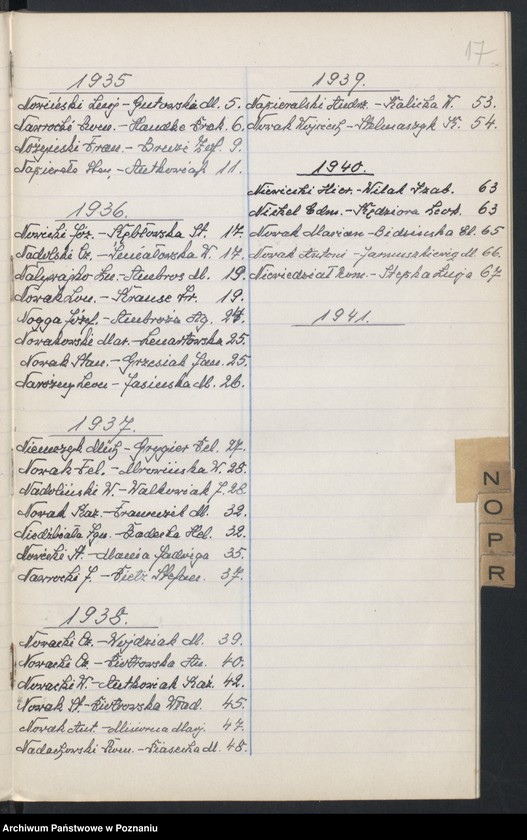 17
1935
Nowiński Luaj - Gutowska M. 5.
Nawrocki Rom. - Handke Brok. 6.
Nożyński Fran. - Breuzi Zof. 9.
Napierała Stan. - Antkowiak 11.
1936.
Nowicki Józ. - Stębłowska St. 17.
Nadolski Cz. - Leniałowska W. 17.
Nalewajko Lu. - Ambros M. 19.
Nowak Lon. - Krause Ir. 19.
Nogga Józef. - Ambroża Ag. 24.
Nowakowski Mar. - Lenartowska 25.
Nowak Stan. - Grzesiak Jan. 25.
Narożny Leon - Jasińska M. 26.
1937.
Niemczyk Mich - Grygier Hel. 27.
Nowak Fel. - Mrowińska W. 28.
Nadoliński W. - Walkowiak J. 28.
Nowak Kaz. - Frauenzik M. 32.
Niedźbiała Ign. - Zadecka Hel. 32.
Nowicki St. - Mania Jadwiga 35.
Nawrocki J. - Pietz Stefan. 37.
1938.
Nowacki Cz. - Wojdziak M. 39.
Nowacki Cz. - Piotrowska An. 40.
Nowacki W. - Antkowiak Kaz. 42.
Nowak St. - Piotrowska Wład. 45.
Nowak Ant. - Misiorna Marj. 47.
Nadachowski Rom. - Piasecka M. 48.
1939.
Napieralski Andrz. - Kalicka W. 53.
Nowak Wojciech - Stelmaszyk K. 54.
1940.
Niewiecki Hier. - Witak Izab. 63
Nickel Edm. - Kędziora Leok. 63
Nowak Marian - Bidzińska El. 65
Nowak Antoni - Januszkiewicz M. 66.
Niewiedział Rom. - Stepka Łucja 67
1941.
N
O
P
R
Archiwum Państwowe w Poznaniu